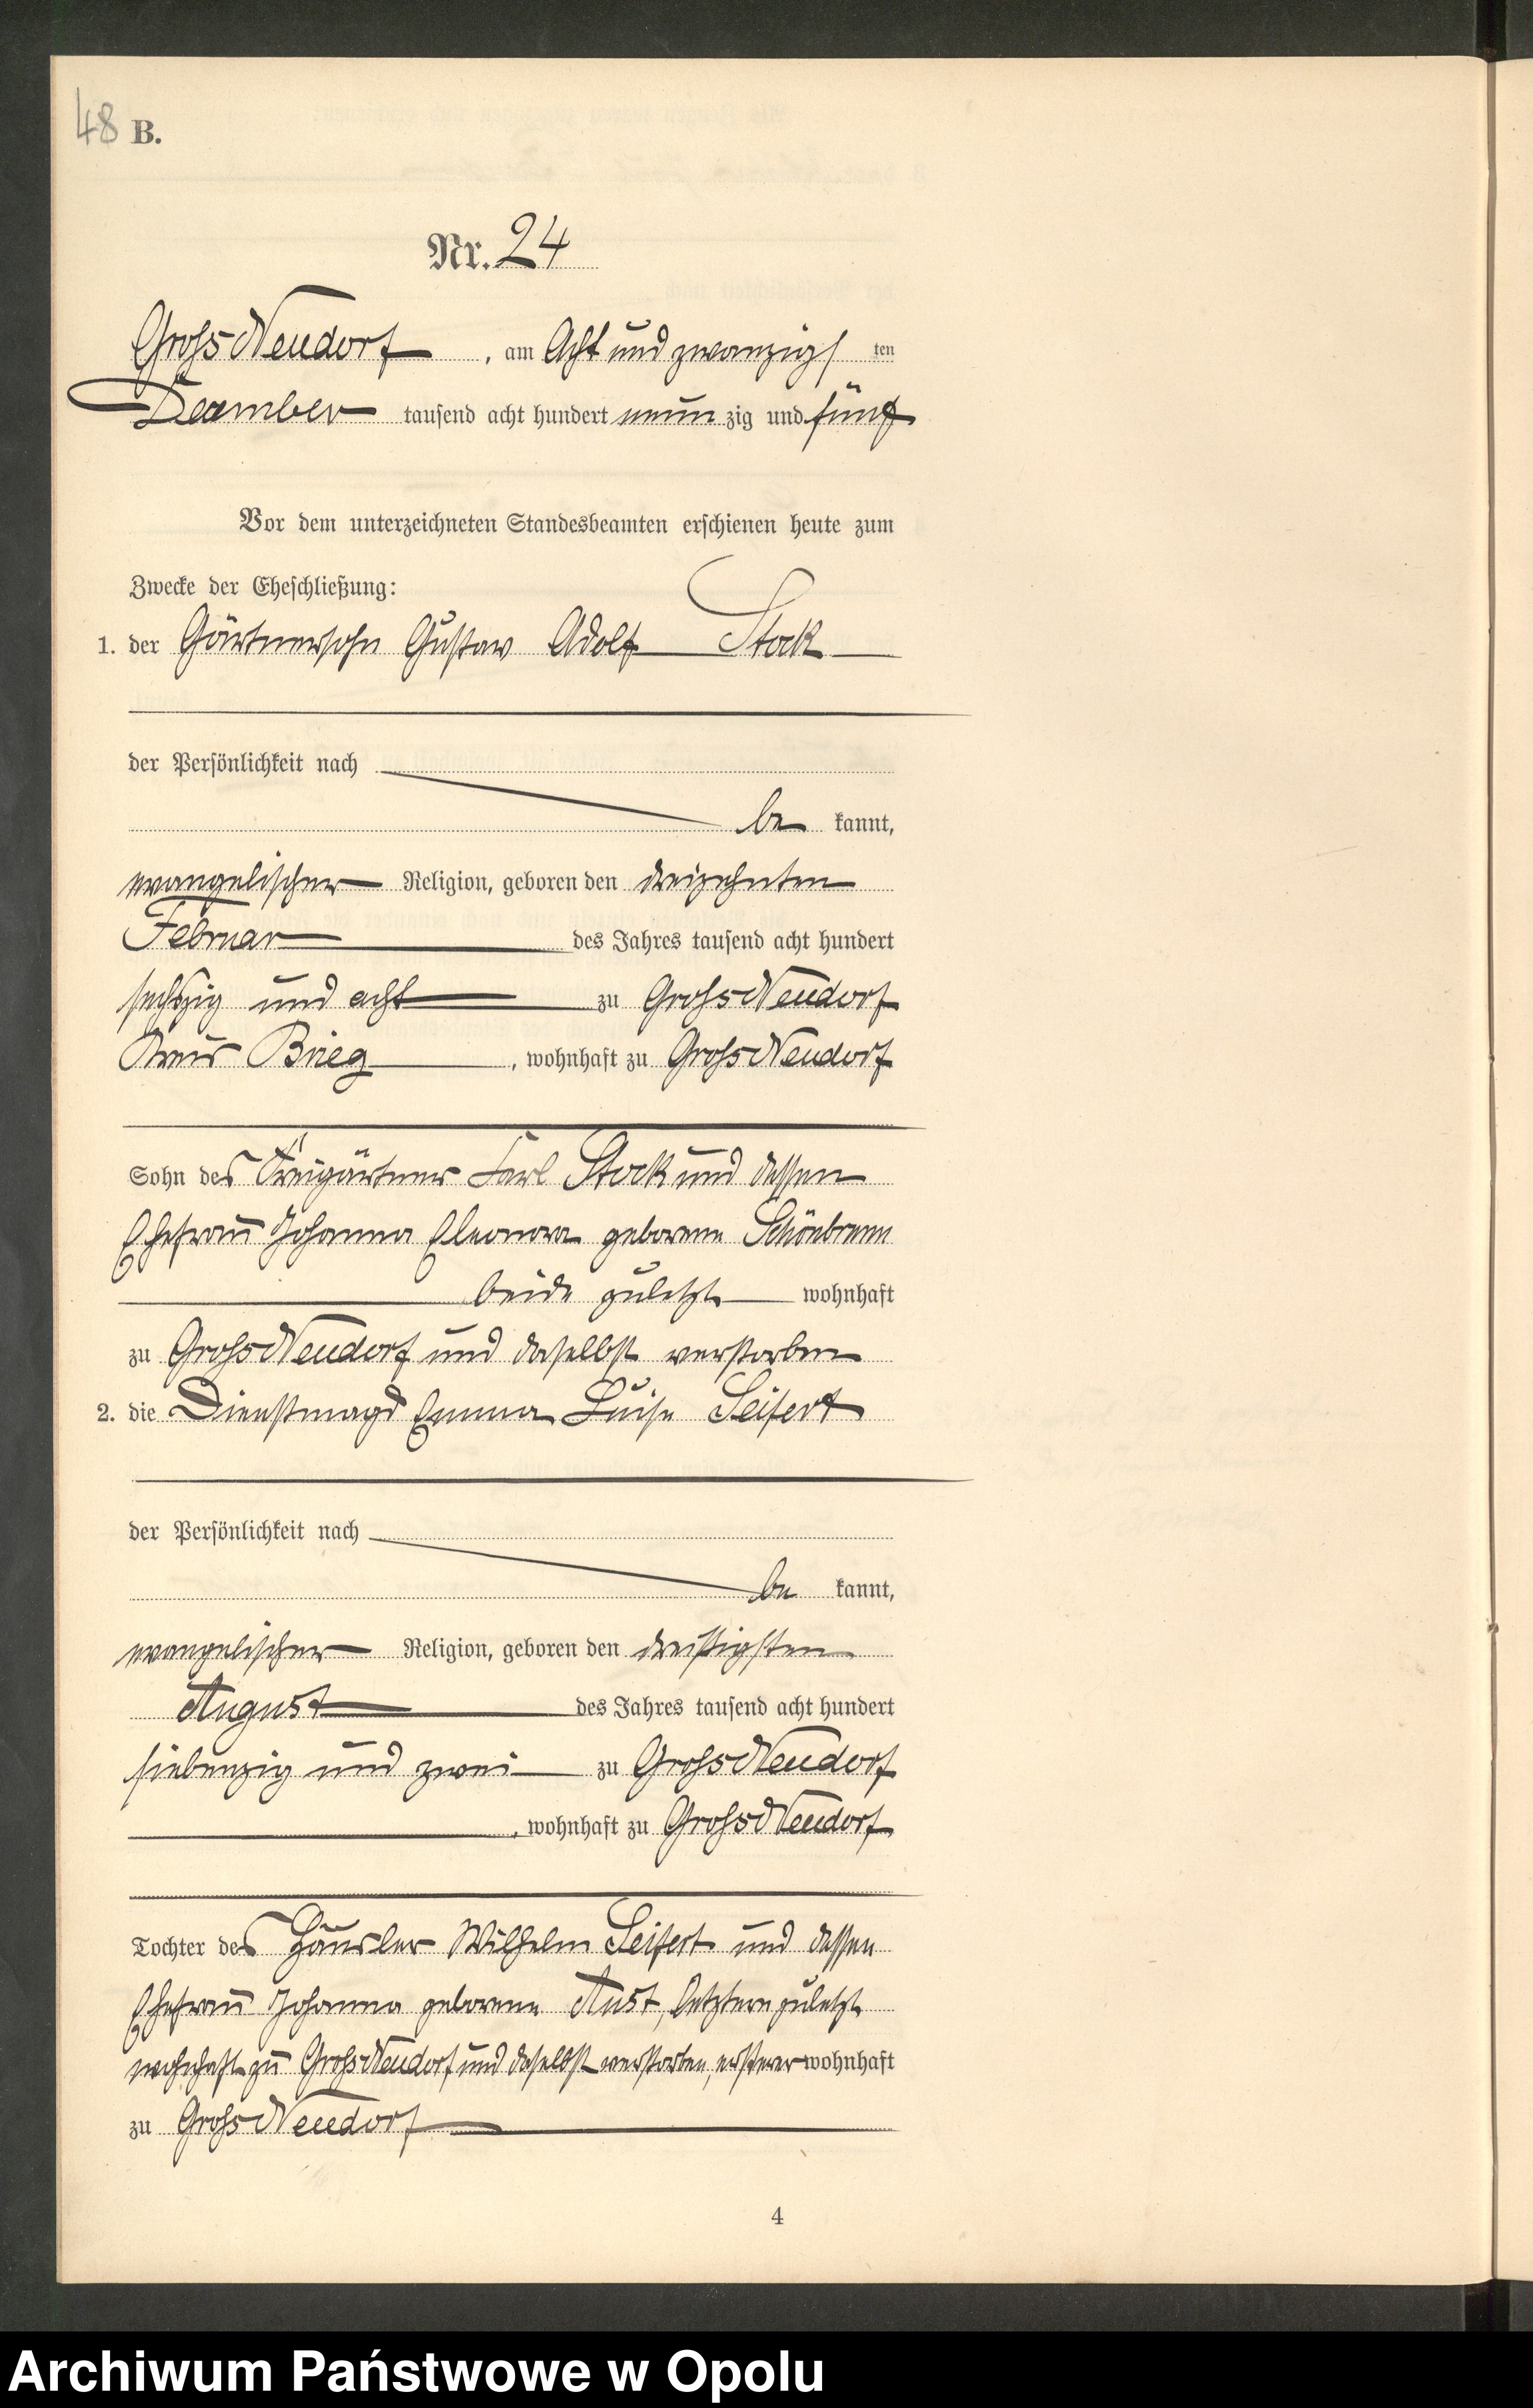 48 B.
Nr. 24
Gross Neudorf, am Acht und zwanzigsten
December tausend acht hundert neunzig und fünf
Vor dem unterzeichneten Standesbeamten erschienen heute zum
Zwecke der Eheschließung:
1. der Gärtnersohn Gustav Adolf Stock
der Persönlichkeit nach
be kannt,
evangelischer Religion, geboren den dreizehnten
Februar des Jahres tausend acht hundert
sechszig und acht zu Gross Neudorf
Kreis Brieg, wohnhaft zu Gross Neudorf
Sohn des Freigärtners Carl Stock und dessen
Ehefrau Johanna Eleonora geborene Schönbrunn
beide zuletzt wohnhaft
zu Gross Neudorf und daselbst verstorben
2. die Dienstmagd Emma Luise Seifert
der Persönlichkeit nach
be kannt,
evangelischer Religion, geboren den dreißigsten
August des Jahres tausend acht hundert
siebenzig und zwei zu Gross Neudorf
, wohnhaft zu Gross Neudorf
Tochter des Häusler Wilhelm Seifert und dessen
Ehefrau Johanna geborene Aust, letztere zuletzt
wohnhaft zu Gross Neudorf und daselbst verstorben, ersterer wohnhaft
zu Gross Neudorf
4
Archiwum Państwowe w Opolu